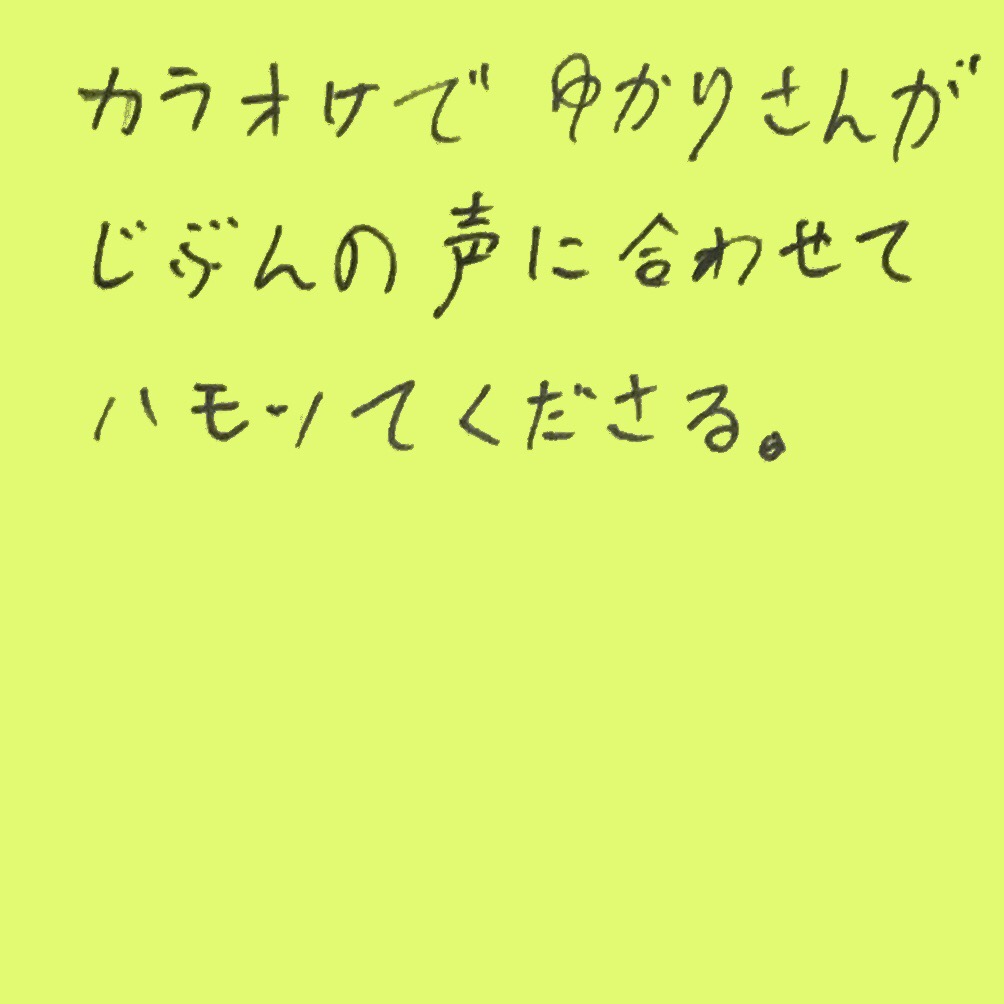 カラオケで ゆかりさんが
じぶんの声に合わせて
ハモってくださる。